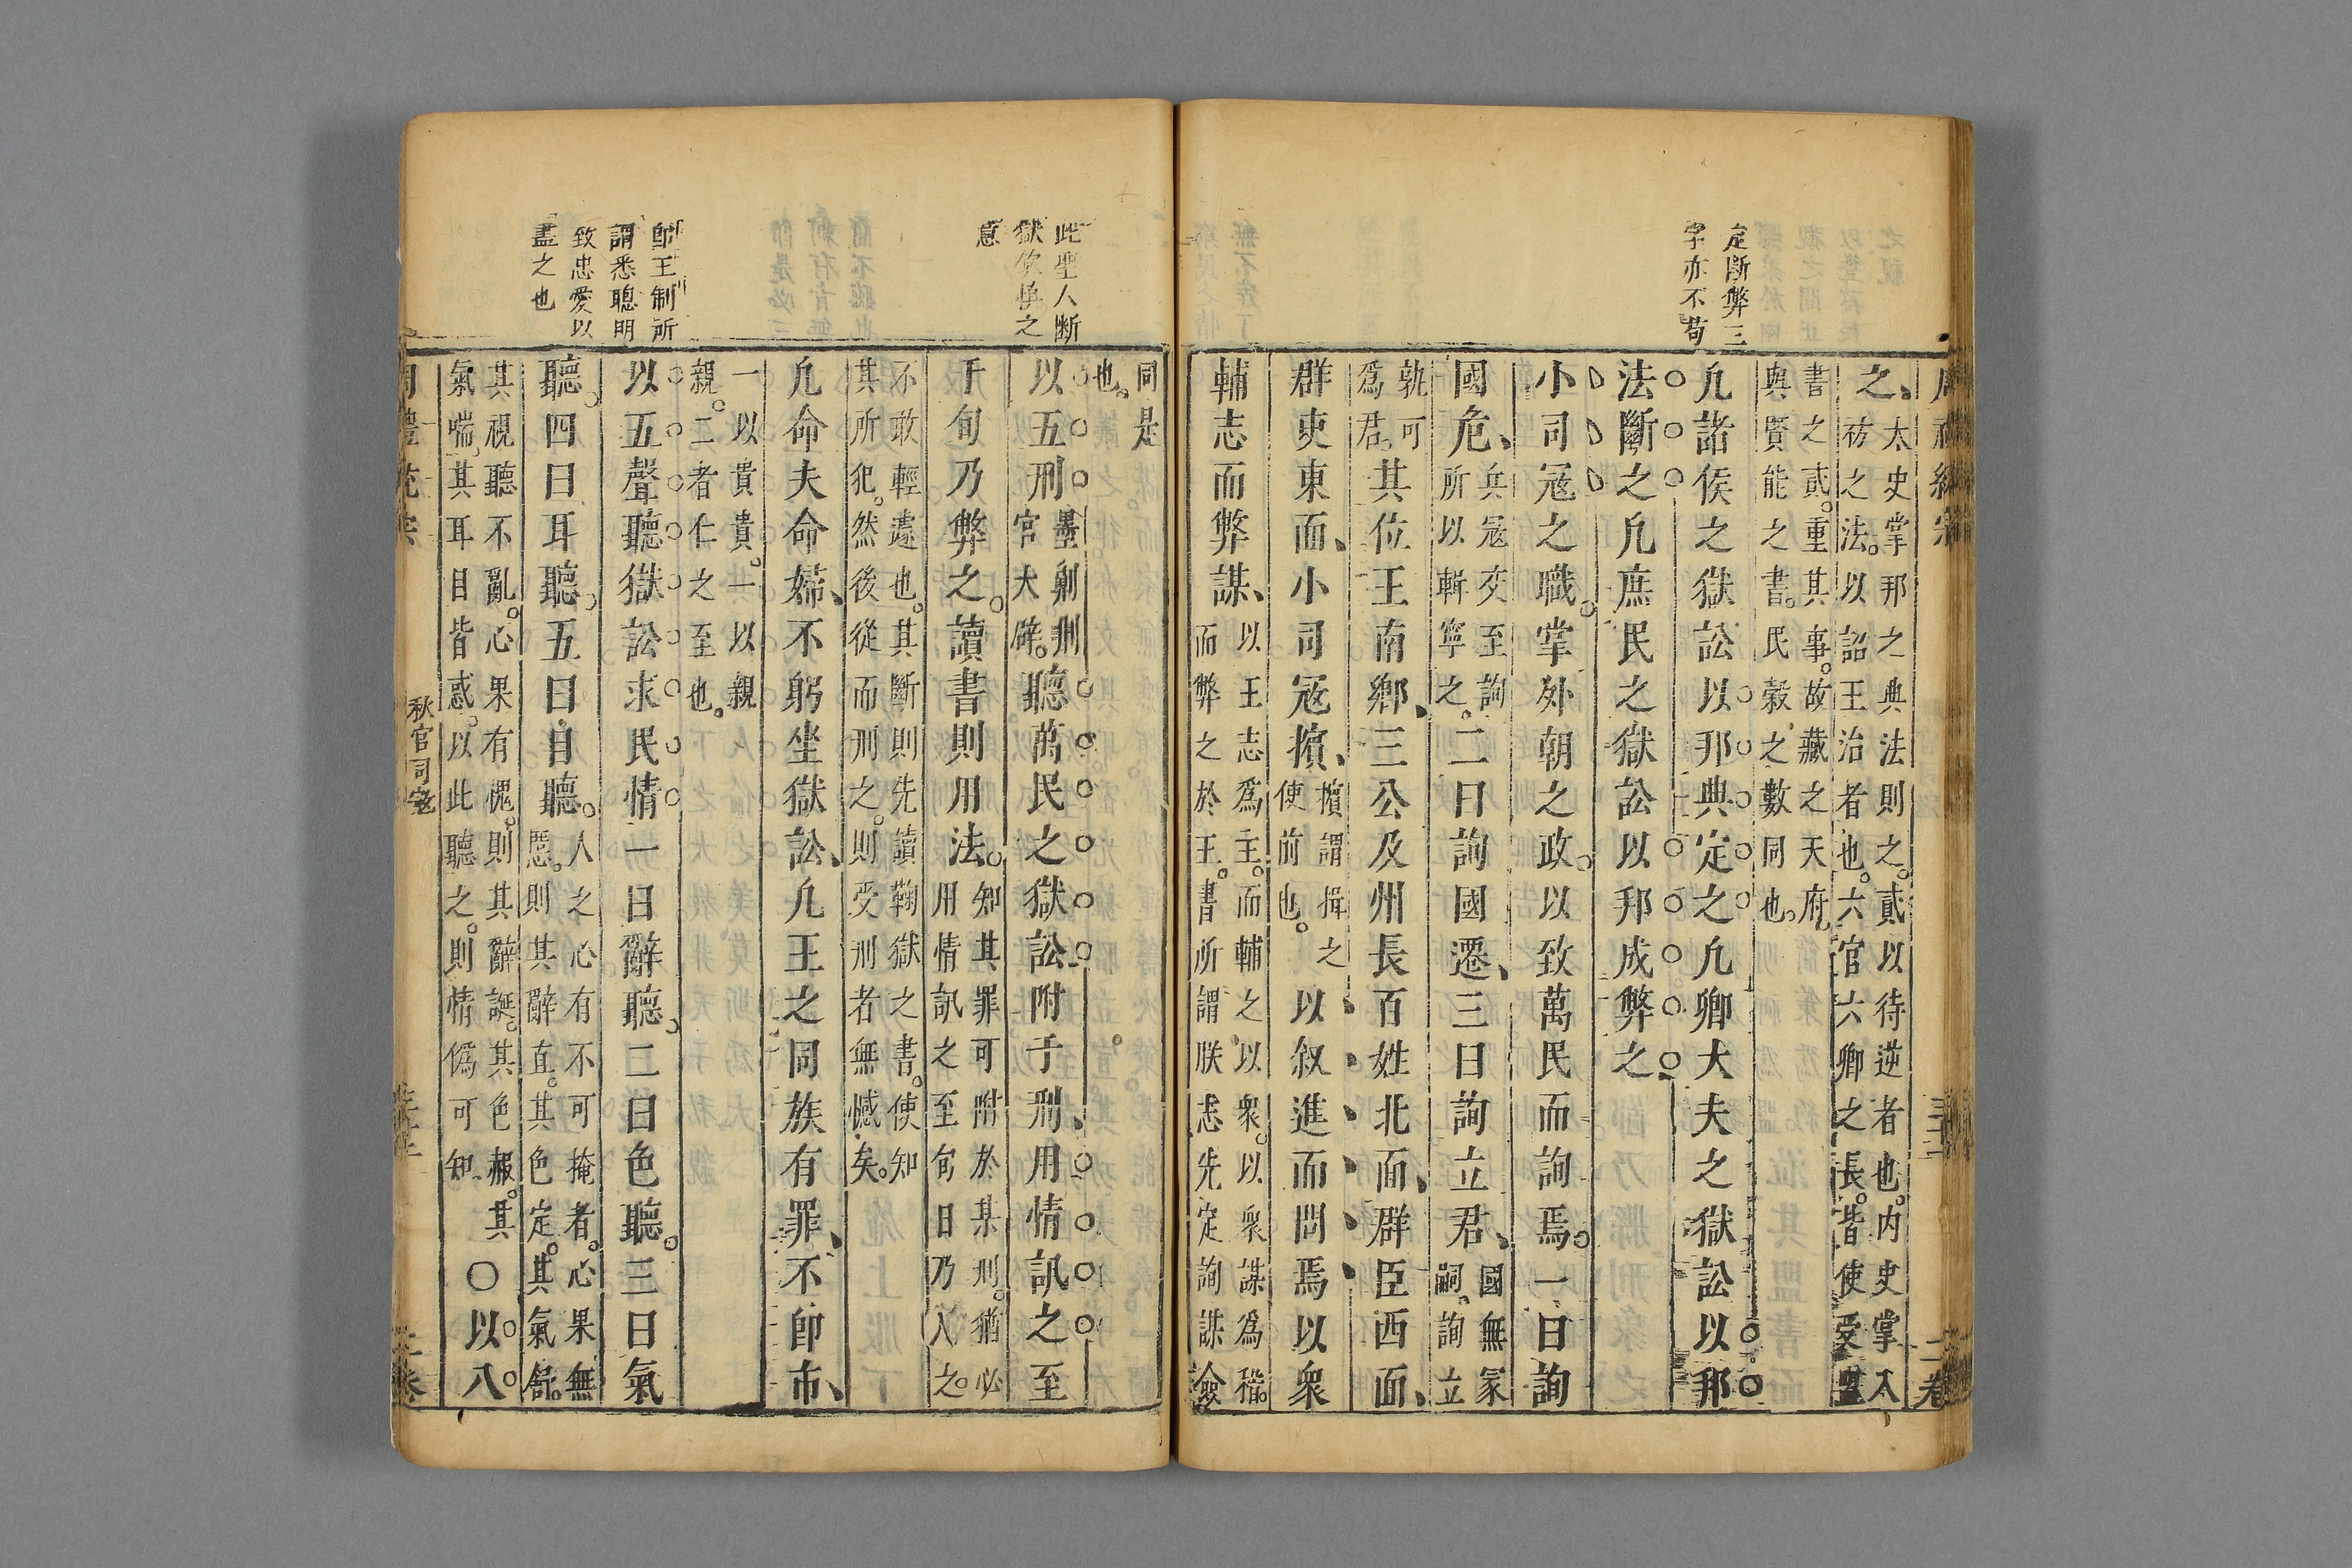 定斷弊三
字亦不苟
之太史掌邦之典法則之貳以待逆者也內史掌八
祊之法以詔王治者也六官六卿之長皆使受盟
書之貳重其事故藏之天府
與賢能之書民穀之數同也
凢諸侯之獄訟以邦典定之凢卿大夫之獄訟以邦
法斷之凢庶民之獄訟以邦成弊之
小司冦之職掌外朝之政以致萬民而詢焉一曰詢
國危兵冦交至詢
所以斬寧之二曰詢國遷三曰詢立君國無冢
嗣詢立
孰可
爲君其位王南鄉三公及州長百姓北面群臣西面
群吏東面小司冦擯擯謂揖之
使前也以叙進而問焉以衆
輔志而弊謀以王志爲主而輔之以衆以衆謀爲稽
而弊之於王書所謂朕志先定詢謀僉
二卷
此聖人斷
獄欽慎之
意
卽王制所
謂悉聰明
致忠愛以
盡之也
同是
也
以五刑墨劓刖
宮大辟聽萬民之獄訟附于刑用情訊之至
于旬乃弊之讀書則用法知其罪可附於某刑猶必
用情訊之至旬日乃入之
不敢輕遽也其斷則先讀鞠獄之書使知
其所犯然後從而刑之則受刑者無憾矣
凢命夫命婦不躬坐獄訟凢王之同族有罪不卽市
一以貴貴一以親
親二者仁之至也
以五聲聽獄訟求民情一曰辭聽二曰色聽三曰氣
聽四曰耳聽五曰目聽人之心有不可掩者心果無
慝則其辭直其色定其氣舒
其視聽不亂心果有愧則其辭誕其色赧其
氣喘其耳目皆惑以此聽之則情僞可知○以八
秋官司冦